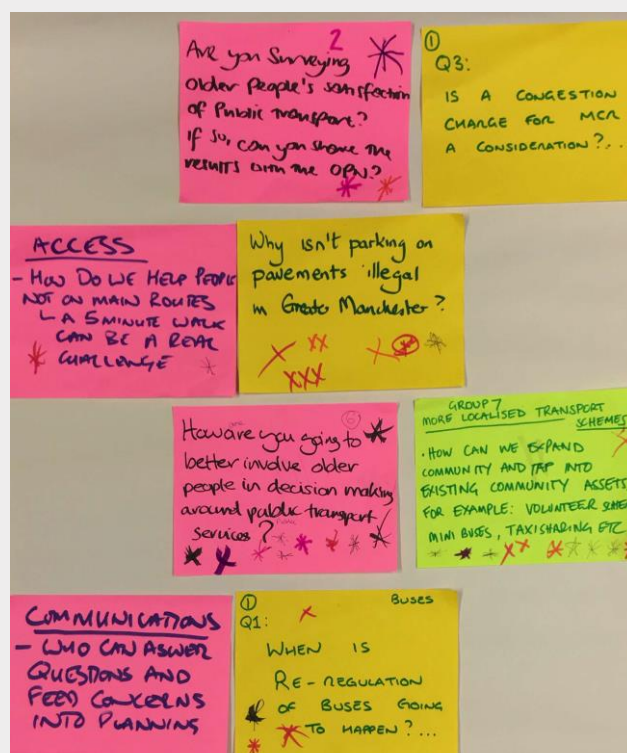 2
Are you Surveying
older People's satisfaction
of Public transport?
If so, can you share the
results with the OPN?
①
Q3:
IS A CONGESTION
CHARGE FOR MCR
A CONSIDERATION?...
ACCESS
- HOW DO WE HELP PEOPLE
NOT ON MAIN ROUTES
↳ A 5 MINUTE WALK
CAN BE A REAL
CHALLENGE
Why isn't parking on
pavements illegal
in Greater Manchester?
How are you going to
better involve older
people in decision making
around public transport
services?
GROUP 7
MORE LOCALISED TRANSPORT
SCHEMES
· HOW CAN WE EXPAND
COMMUNITY AND TAP INTO
EXISTING COMMUNITY ASSETS
FOR EXAMPLE: VOLUNTEER
MINI BUSES, TAXISHARING ETC
COMMUNICATIONS
- WHO CAN ASWER
QUESTIONS AND
FEED CONCERNS
INTO PLANNING
① BUSES
Q1:
WHEN IS
RE-REGULATION
OF BUSES GOING
TO HAPPEN?...